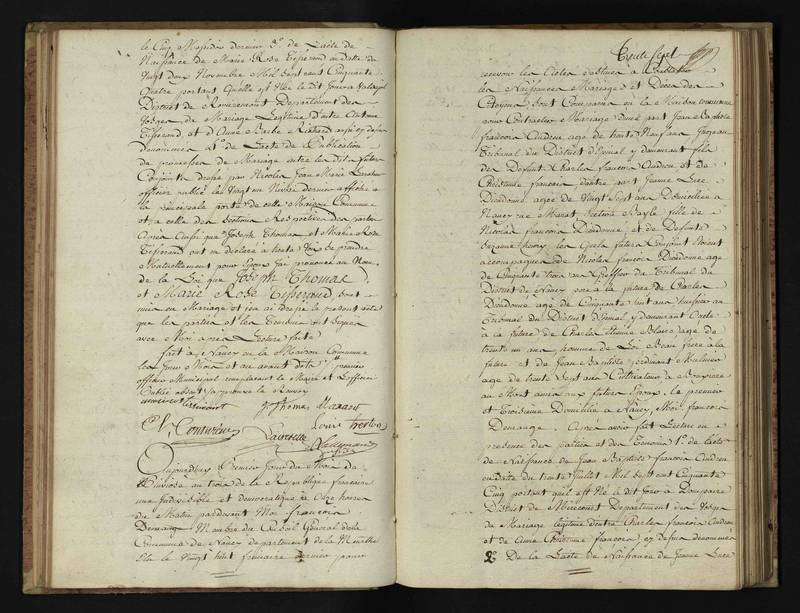 le Cinq Messidor dernier 3.° de Lacte de
Naissance de Marie Rose Tisserand en datte du
Vingt deux Novembre Mil Sept cent Cinquante
quatre portant quelle est Née le dit Jour a
District de Departement des
Vosges de Mariage Legitime d'entre Antoine
Tisserand et d'Anne Barbe Richard aussi cy dessus
denommés 4.° de Lacte de Publication
de promesses de Mariage entre les dits futurs
Conjoints dressé par Nicolas Jean Marie
officier public le Vingt un Nivôse dernier affiché a
la principale porte de cette Maison Commune
et a celle des Sections Respectives des parties
Après aussi que Joseph Thomas, et Marie Rose
Tisserand ont declaré a haute Voix se prendre
Mutuellement pour Epoux J'ai prononcé au Nom
de la Loi que Joseph Thomas
et Marie Rose Tisserand, sont
unis en Mariage et j'en ai dressé le present acte
que les parties et les Temoins ont Signés
avec Moi après Lecture faite
fait a Nancy en la Maison Commune
les Jour Mois et an avant dits
officier Municipal remplaçant le Maire et L'officier
Public
Thomas
Couturier Louis
Aujourd'huy Premier Jour du Mois de
Pluviôse au trois de la Republique françoise
une Indivisible et democratique à Onze heures
du Matin pardevant Moi françois
Demange Membre du Conseil Général de la
Commune de Nancy departement de la Meurthe
Elu le Vingt huit frimaire dernier pour
recevoir les Actes destinés a Constater
les Naissances Mariages et Décès des
Citoyens, sont Comparus en la Maison Commune
pour Contracter Mariage d'une part Jean Baptiste
françois age de trente Neuf ans Juge au
Tribunal du District d'Epinal y demeurant fils
des Defunt Charles françois et de
Christine françois d'autre part Jeanne Luce
Dieudonné agée de Vingt Sept ans Domiciliée a
Nancy rue Bayle fille de
Nicolas françois Dieudonné et de Defunte
Suzanne Henry les quels futurs Conjoints étoient
accompagnés de Nicolas françois Dieudonné age
de Cinquante trois ans Greffier du Tribunal du
District de Nancy pere a la future de Charles
Dieudonné agé de Cinquante huit ans huissier au
Tribunal du District d'Epinal y demeurant Oncle
a la future de Charles Etienne Blaise age de
trente un ans homme de Loi Beau frere a la
future et de Jean Baptiste
age de trente Sept ans Cultivateur à Bruyeres
au Mont amis aux futurs Epoux. le premier
et troisieme Domiciliés a Nancy, Moi françois
Demange Après avoir fait Lecture en
presence des parties et des Temoins 1.° de Lacte
de Naissance de Jean Baptiste françois
en datte du trente Juillet Mil Sept cent Cinquante
Cinq portant quil est Né le dit Jour a Dompaire
District de Mirecourt Departement des Vosges
du Mariage legitime d'entre Charles françois
et de Christine françois, cy dessus denommés
2.° De Lacte de Naissance de Jeanne Luce